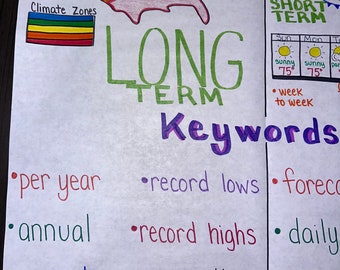 Climate Zones
LONG
TERM
SHORT
TERM
Sun Mon
sunny sunny
75° 75°
• week
to week
Keywords
• per year
• record lows
• annual
• record highs
• daily